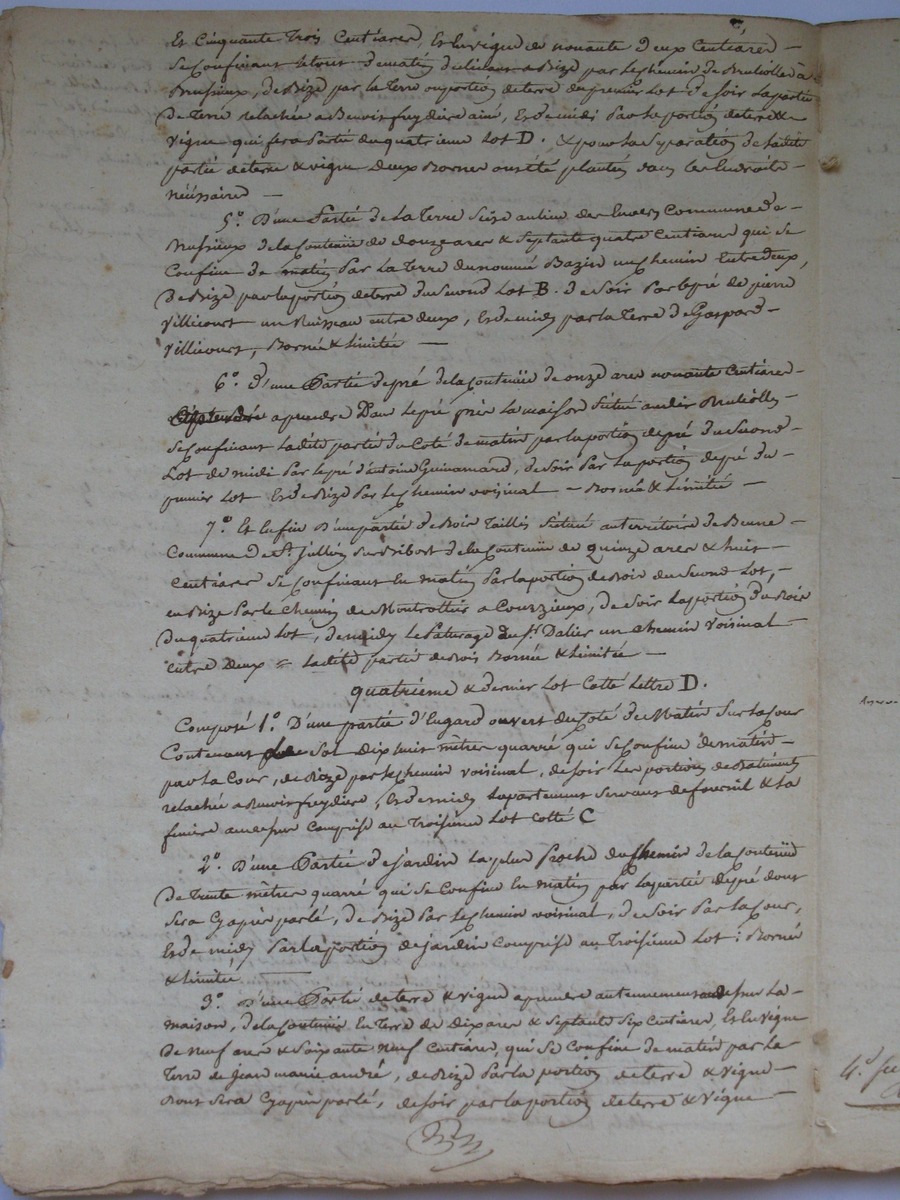 Et Cinquante trois Centiares, Et En vigne de nonante deux Centiares —
Se Confinant le tout de matin de bize par le chemin de Brulliolles à
Brussieux, de Bize par la terre ou portion de terre du premier Lot De soir la partie
De Terre relachée a Benoit freydiere ainé, Et de midi Par la portion de terre &
vigne qui fera Partie du quatrieme Lot D. & pour la Separation de la dite
partie de terre & vigne deux Bornes ont été plantées dans les Endroits
nécéssaires —
5.° D'une Partie de La Terre Size au lieu des Commune de
Brussieux de la Contenüe de douze ares & Septante quatre Centiares qui se
Confine de matin Par La Terre du nommé Bazin un chemin Entre deux,
De Bize par la portion de terre du Second Lot B. de Soir Par le pré de pierre
Villicourt un Ruisseau entre deux, Et de midy par la Terre de Gaspard
Villicourt, Bornée & Limitée —
6.° d'une Partie de pré de la Contenüe de onze ares nonante Centiares
a prendre Dans le pré près la maison Situé au dit Brulliolles
Se Confinant la dite partie du Coté de matin par la portion de pré du Second
Lot de midi Par le pré d'antoine Guinamard, de Soir Par La portion de pré du
premier Lot Et de Bize Par le Chemin voisinal — Bornée & Limitée —
7.° Et Enfin D'une partie de Bois Taillis Située au térritoire de
Commune de St. Jullien Sur Bibost de la Contenüe de quinze ares & huit
Centiares Se Confinant En matin Par la portion de Bois du Second Lot,
en Bize Par le Chemin de Montrottier a Courzieux, de Soir La portion du Bois
Du quatrieme Lot, de midy le Paturage du Sr. Dalier un Chemin Voisinal
entre Deux = la dite partie de Bois Bornée & Limitée —
quatriéme & dernier Lot Cotté Lettre D.
Composé 1.° D'une partie d'Engard ouvert du Coté de Matin Sur la Cour
Contenant de Sol dix huit mètres quarré qui se Confine de matin
par la Cour, de Bize par le chemin voisinal, de soir Les portions de Batiments
relachée a Benoit freydiere, Et de midy Lapartement Servant de fournil & la
au dessus Compris au Troisieme Lot Cotté C
2.° D'une Partie de jardin La plus Proche du Chemin de la Contenüe
De trente mètres quarré qui Se Confine En matin par la partie de pré dont
Sera Cy après parlé, de Bize Par le chemin voisinal, de Soir Par la Cour,
Et de midy Par la portion de jardin Comprise au Troisieme Lot : Borné
& Limitée —
3.° D'une Partie de terre & vigne a prendre au ténnement au dessus La
maison, de la Contenüe En Terre de dix ares & Septante Six Centiares, Et En Vigne
De neuf ares & Soixante neuf Centiares, qui Se Confine de matin par la
Terre de jean marie andré, de Bize Par la portion de terre & vigne
Dont Sera Cy après parlé, de Soir par la portion de terre & vigne —